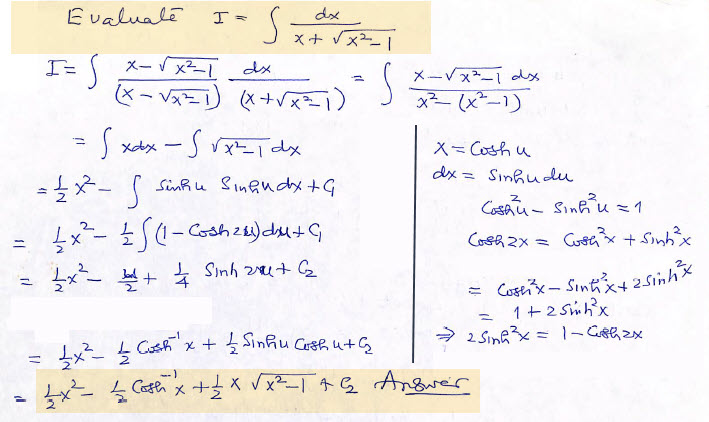 Evaluate I = ∫ dx / (x + √(x²-1))
I = ∫ (x - √(x²-1)) / (x - √(x²-1)) dx / (x + √(x²-1)) = ∫ (x - √(x²-1) dx) / (x² - (x²-1))
= ∫ xdx - ∫ √(x²-1) dx
= 1/2 x² - ∫ sinh u Sinh u dx + C₁
= 1/2 x² - 1/2 ∫ (1 - Cosh 2u) du + C₁
= 1/2 x² - u/2 + 1/4 Sinh 2u + C₂
= 1/2 x² - 1/2 Cosh⁻¹ x + 1/2 Sinh u Cosh u + C₂
= 1/2 x² - 1/2 Cosh⁻¹ x + 1/2 x √(x²-1) + C₂ Answer
x = Cosh u
dx = Sinh u du
Cosh² u - Sinh² u = 1
Cosh 2x = Cosh² x + Sinh² x
= Cosh² x - Sinh² x + 2 Sinh² x
= 1 + 2 Sinh² x
⇒ 2 Sinh² x = 1 - Cosh 2x